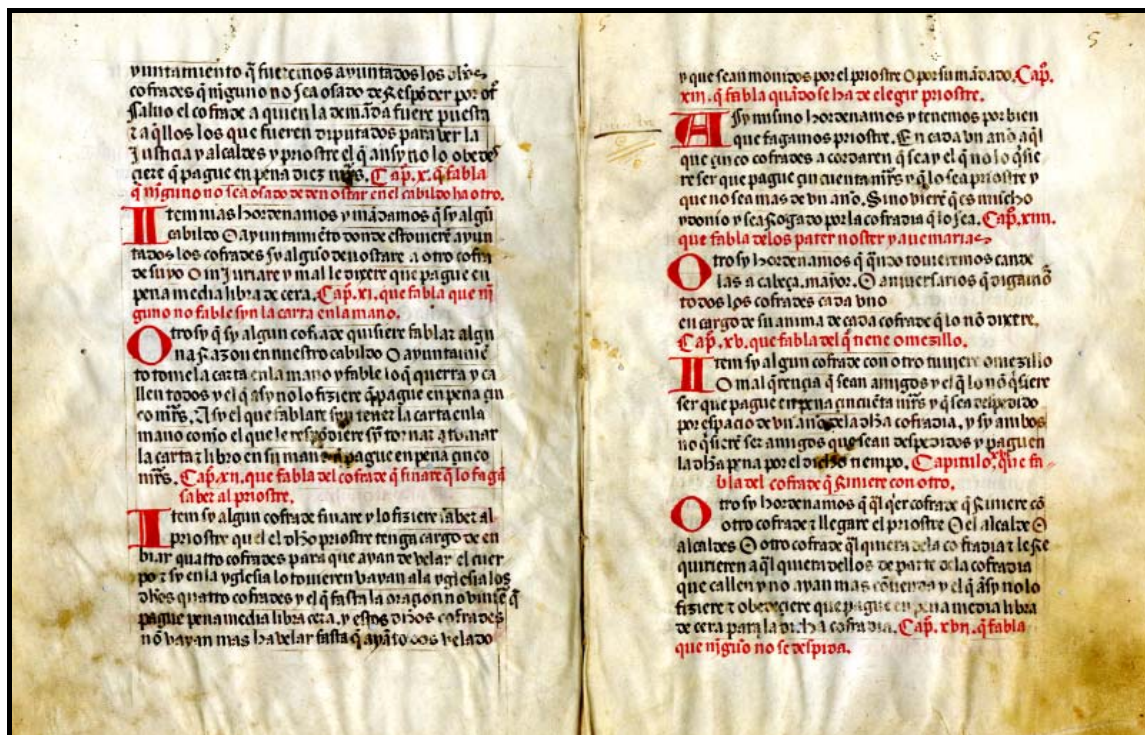 yuntamiento q̃ fueremos ayuntados los dhõs
cofrades q̃ niguno no sea osado de Respõder por ot̃
Saluo el cofrade a quien la demãda fuere puesta
τ aq̃llos los que fueren diputados para ver la
Justicia y alcaldes y priostre el q̃ ansy no lo obede
ciere q̃ pague en pena diez mr̃s. Cap̃. x. q̃ fabla
q̃ niguno no sea osado de denostar en el cabildo ha otro.
Item mas hordenamos y mãdamos q̃ sy algũ
cabildo O ayuntamiẽto donde estouierẽ ayun
tados los cofrades sy algũo denostare a otro cofra
de suyo O injuriare y mal le dixere que pague en
pena media libra de cera. Cap̃. xi. que fabla que nĩ
guno no fable syn la carta enla mano.
Otro sy q̃ sy algun cofrade quisiere fablar algu
na Razon en nuestro cabildo O ayuntamiẽ
to tome la carta enla mano y fable lo q̃ querra y ca
llen todos y el q̃ asy no lo fiziere q̃ pague en pena çin
co mr̃s. Asy el que fablare syn tener la carta enla
mano como el que le respõdiere syn tornar a tomar
la carta τ libro en su mano q̃ pague en pena çinco
mr̃s. Cap̃. xii. que fabla del cofrade q̃ finare q̃ lo fagã
saber al priostre.
Item sy algun cofrade finare y lo fiziere saber al
priostre qu el el dhõ priostre tenga cargo de en
biar quatro cofrades para que ayan de velar el cuer
po τ sy en la yglesia lo touieren vayan ala yglesia los
dhõs quatro cofrades y el q̃ fasta la oraçon no viniere q̃
pague pena media libra cera. y estos dichos cofrades
nõ vayan mas ha velar fasta q̃ ayã todos velado
5
5
y que sean monidos por el priostre O por su mãdado. Cap̃.
xiii. q̃ fabla quãdo se ha de elegir priostre.
Asy mismo hordenamos y tenemos por bien
que fagamos priostre. En cada vn año aq̃l
que çinco cofrades acordaren q̃ sea y el q̃ no lo q̃sie
re ser que pague çincuenta mr̃s y q̃ lo sea priostre y
que no sea mas de vn año. Sino vierẽ q̃ es mucho
ydonio y sea Rogado por la cofradia q̃ lo sea. Cap̃. xiiii.
que fabla delos pater noster y auemarias
Otro sy hordenamos q̃ q̃ndo touieremos cande
las a cabeça. mayor. O aniversarios q̃ digamõ
todos los cofrades cada vno
en cargo de su anima de cada cofrade q̃ lo nõ dixere.
Cap̃. xv. que fabla del q̃ tiene omezillo.
Item sy algun cofrade con otro tuuiere omezillo
O mal q̃rençia q̃ sean amigos y el q̃ lo nõ q̃siere
ser que pague en pena çincuẽta mr̃s y q̃ sea despedido
por espacio de vn año dela dhã cofradia. y sy ambos
no q̃sierẽ ser amigos que sean despedidos y paguen
la dhã pena por el dicho tiempo. Capitulo. xvi. que fa
bla del cofrade q̃ Riniere con otro.
Otro sy hordenamos que q̃l q̃er cofrade q̃ Riniere cõ
otro cofrade τ llegare el priostre O el alcalde O
alcaldes O otro cofrade q̃l quiera dela cofradia τ le Re
quirieren a q̃l quiera dellos de parte dela cofradia
que callen y no ayan mas cõtienda y el q̃ asy no lo
fiziere τ obedeçiere que pague en pena media libra
de cera para la dicha cofradia. Cap̃. xvii. q̃ fabla
que niguõ no se despida.